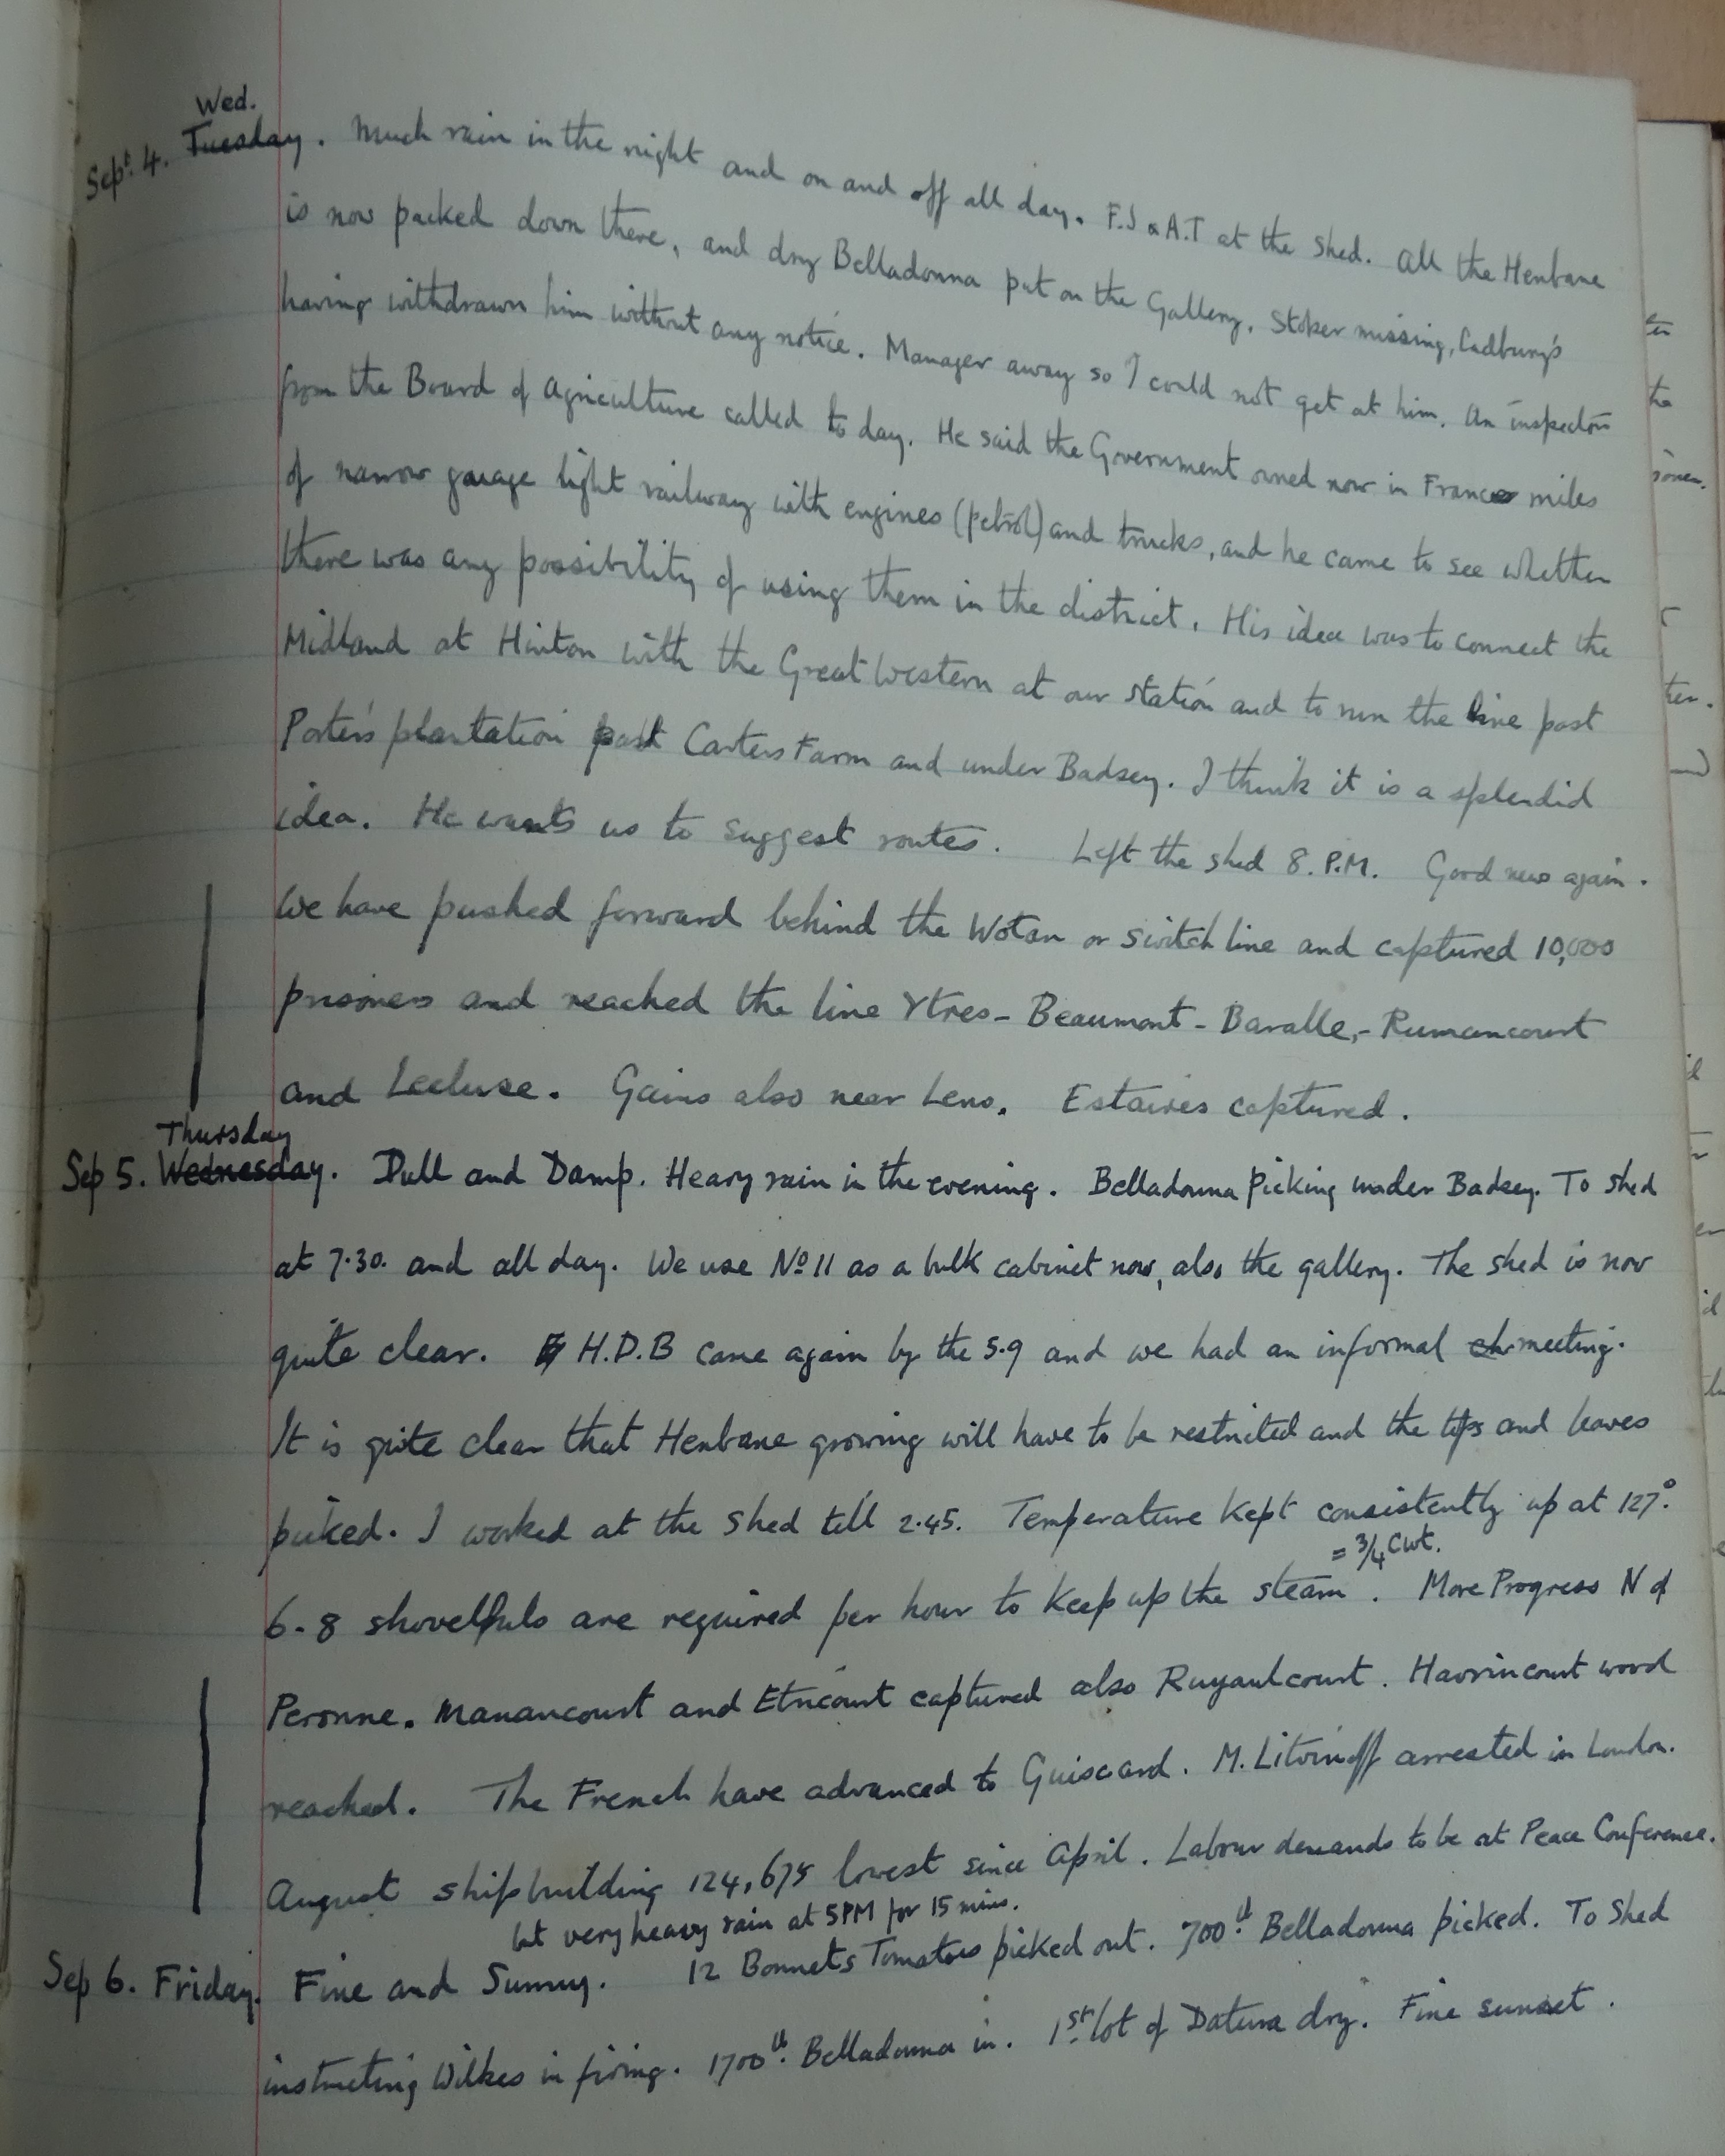 Wed.
Sept. 4. Tuesday. Much rain in the night and on and off all day. F.J & A.T at the shed. All the Henbane
is now packed down there, and dry Belladonna put on the Gallery. Stoker missing, Cadbury's
having withdrawn him without any notice. Manager away so I could not get at him. An inspector
from the Board of Agriculture called to day. He said the Government owned now in France miles
of narrow gauage light railway with engines (petrol) and trucks, and he came to see whether
there was any possibility of using them in the district. His idea was to connect the
Midland at Hinton with the Great Western at our station and to run the line past
Porter's plantation past Carters Farm and under Badsey. I think it is a splendid
idea. He wants us to suggest routes. Left the shed 8. P.M. Good news again.
We have pushed forward behind the Wotan or switch line and captured 10,000
prisoners and reached the line Ytres - Beaumont - Baralle, - Rumancourt
and Lecluse. Gains also near Lens. Estaires captured.
Thursday
Sep 5. Wednesday. Dull and Damp. Heavy rain in the evening. Belladonna picking under Badsey. To shed
at 7.30. and all day. We use No 11 as a bulk cabinet now, also the gallery. The shed is now
quite clear. H.D.B came again by the 5.9 and we had an informal meeting.
It is quite clear that Henbane growing will have to be restricted and the tops and leaves
picked. I worked at the shed till 2.45. Temperature kept consistently up at 127°.
= 3/4 Cwt.
6-8 shovelfuls are required per hour to keep up the steam. More Progress N of
Peronne. Manancourt and Etricourt captured also Ruyaulcourt. Havrincourt wood
reached. The French have advanced to Guiscard. M. Litvinoff arrested in London.
August shipbuilding 124,675 lowest since April. Labour demands to be at Peace Conference.
but very heavy rain at 5PM for 15 mins.
Sep 6. Friday. Fine and Sunny. 12 Bonnets Tomatoes picked out. 700th Belladonna picked. To Shed
instructing Wilkes in firing. 1700th Belladonna in. 1st lot of Datura dry. Fine sunset.